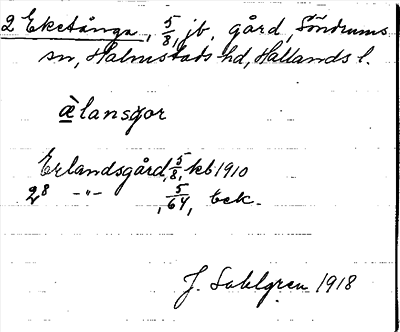 2 Eketånga, 5/8, jb. gård, Söndrums
sn, Halmstads hd, Hallands l.
æ̀lansgor
Erlandsgård, 5/8, kb 1910
2⁸ -"- , 5/64, eck.
J. Sahlgren 1918